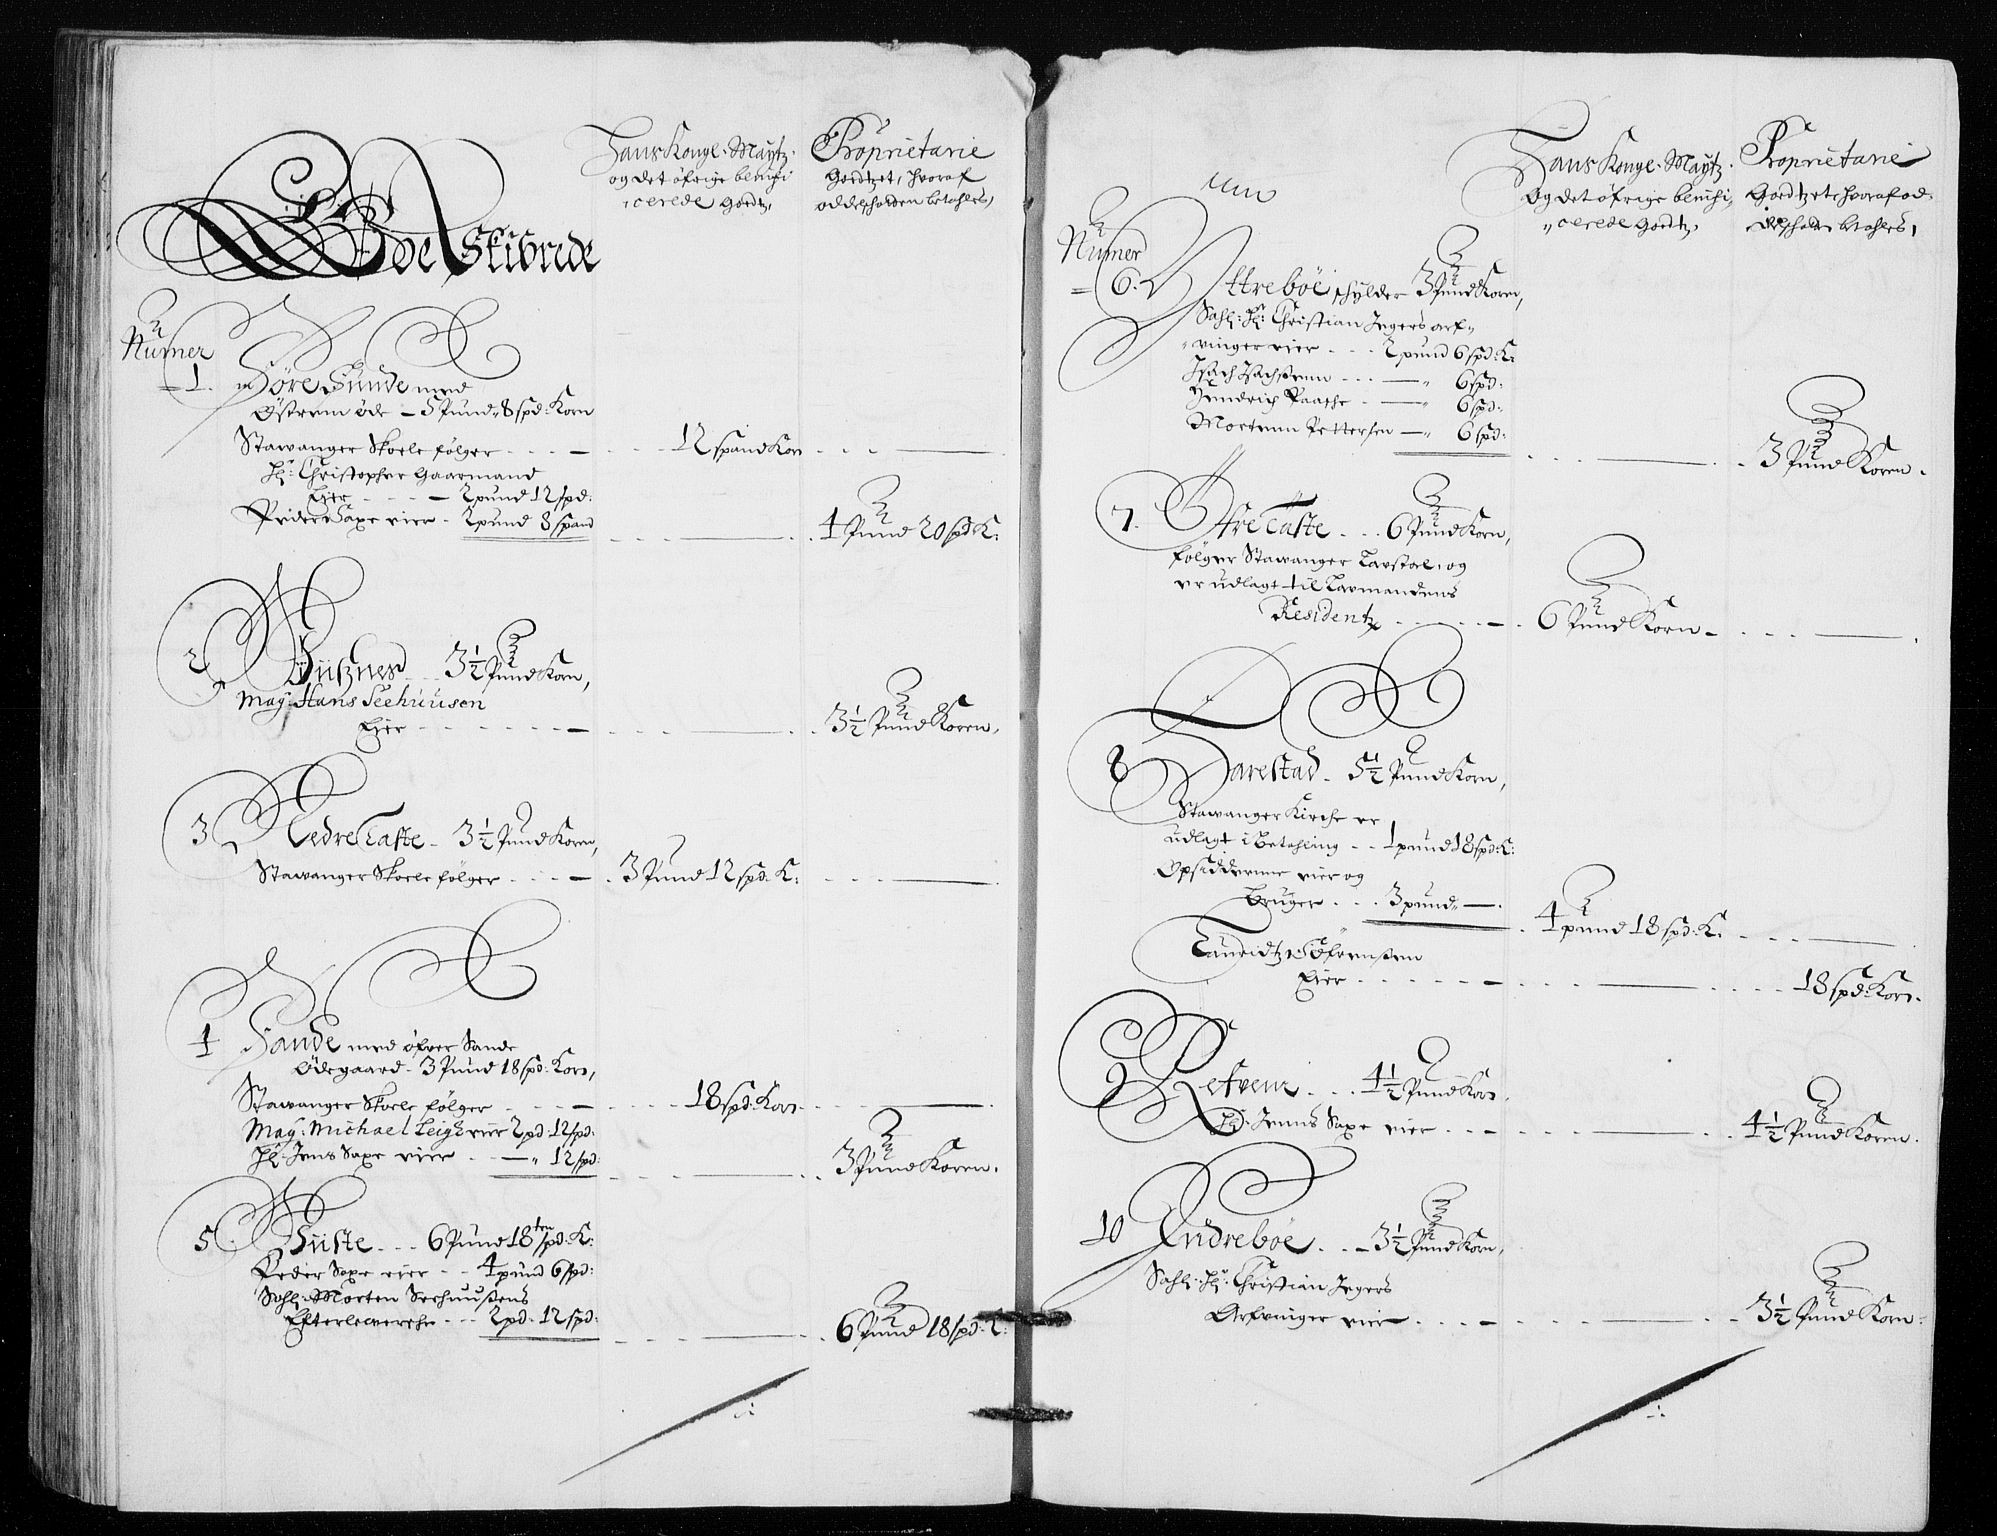 Hans Kongl. Maytz.
og det øfrige benifi
cerede Goedtz,
Proprietarie
Goedtzet, hvoraf
oddelschatten betahles,
Goe Skibrede
Numer
1. Søre Sunde med
Østrem øde – 5 Pund 8 spd: Korn
Stawanger Skoele følger - - - - 12 spand Korn
Hr: Christopher Gaarmand
Eier - - - - 2 pund 12 spd:
Peder Saxe eier - 2 pund 8 spand
4 Pund 20 spd K:
2. 3½ Pund Korn,
May: Hans Seehuusen
Eier - - - - 3½ Pund Koren,
3. Nedre Taste - 3½ Pund Koren,
Stawanger Skoele følger - - - 3 Pund 12 spd. K:
4 Sande med øfver Sande
Ødegaard - 3 Pund 18 spd: Korn,
Stawanger Skoele følger - - - - 18 spd: Korn
May: Michael Leigh eier 2 pd: 12 spd:
Hr: Jens Saxe eier - - — „ 12 spd:
3 Pund Koren.
5. - - - 6 Pund 18ten spd: K:
Peder Saxe eier - - 4 pund 6 spd:
Sahl: Morten Seehuußens
Efterlewersche - - - 2 pd. 12 spd:
6 Pund 18 spd. K:
Hans Kongl. Maytz.
Og det øfrige benifi
„ cerede Goedtz,
Proprietarie
Goedtzet, hvoraf od
delschatten betahles,
Numer
6. Yttrebøe schylder 3 Pund Koren,
Sahl: Hr: Christian Jegers arf„
„ vinger eier - - - 2 pund 6 spd: K:
Isach Isachsenn - - - — „ 6 spd:
Hendrich Paasche - — „ 6 spd:
Mortenn Pettersen — „ 6 spd:
3 Pund Koren.
7. Øfre Taste - - - 6 Pund Korn,
følger Stawanger Lavstoel, og
er udlagt til Lavmandens
Residentz - - - - 6 Pund Korn -
8 Harestad - 5½ Pund Korn,
Stawanger Kirche er
udlagt i Betahling - - 1 pund 18 spd: K:
Opsidderne eier og
bruger - - - 3 pund „ —.
4 pund 18 spd: K.
Lauridtz Søfrensen
Eier - - - - 18 spd: Korn.
9 Refvenr - - - 4½ Pund Korn.
Hr: Jenns Saxe eier - - - 4½ Pund Koren.
10 Endrebøe - - - 3½ Pund Korn,
Sahl: Hr: Christian Jegers
Arfvinger eier - - - - 3½ Pund Korn.